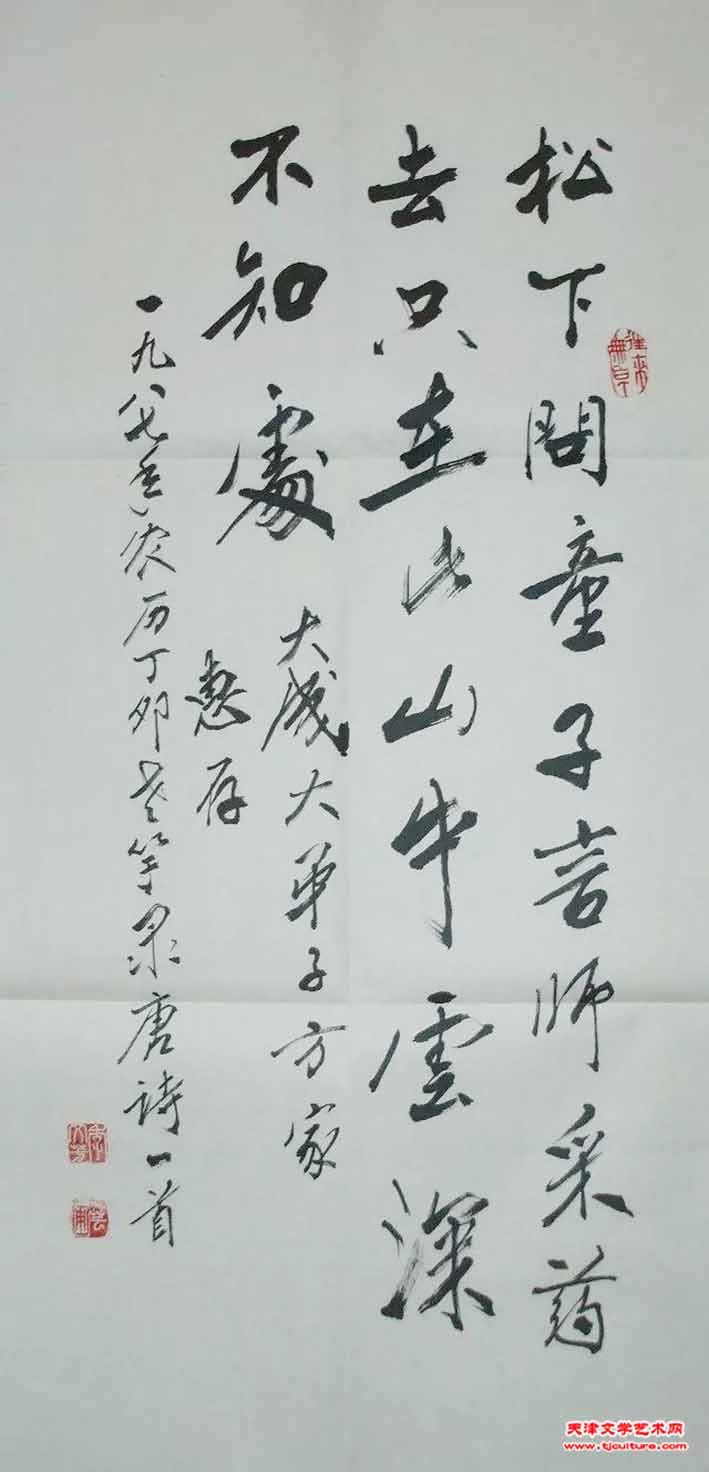 松下問童子言師采葯
去只在此山中雲深
不知處
大成大弟子方家
惠存
一九八七年农历丁卯录唐詩一首
天津文学艺术网
www.tjculture.com